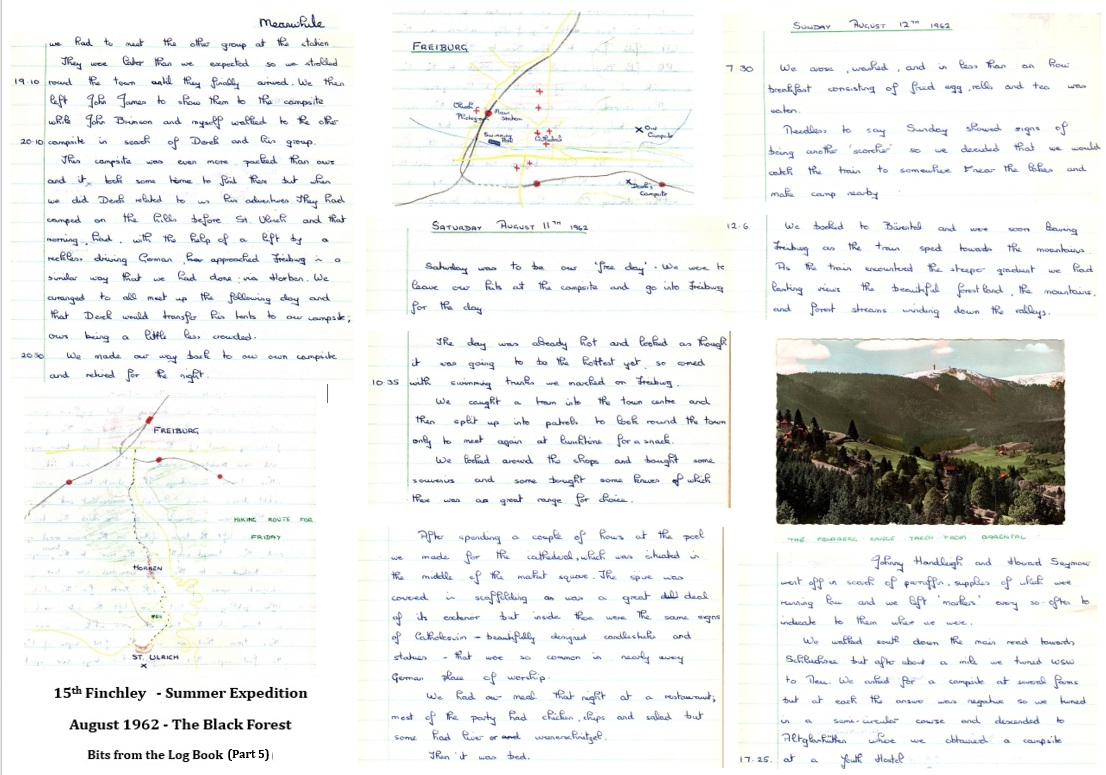 Meanwhile
we had to meet the other group at the station
They were later than we expected so we strolled
19.10 round the town until they finally arrived. We then
left John James to show them to the campsite
while John Brinson and myself walked to the other
20.10 campsite in search of Derek and his group.
This campsite was even more packed than ours
and it took some time to find them but when
we did Derek related to us his adventures. They had
camped on the hills before St. Ulrich and that
morning, had, with the help of a lift by a
reckless driving German, approached Freiburg in a
similar way that we had done; via Horben. We
arranged to all meet up the following day and
that Derek would transfer his tents to our campsite;
ours being a little less crowded.
20.50 We made our way back to our own campsite
and retired for the night.
FREIBURG
HIKING ROUTE FOR
FRIDAY
HORBEN
ST. ULRICH
15th Finchley - Summer Expedition
August 1962 - The Black Forest
Bits from the Log Book (Part 5)
FREIBURG
Main
Station
Swimming
Pool
Cathedral
Our
Campsite
Derek's
Campsite
SATURDAY AUGUST 11TH 1962
Saturday was to be our 'free day'. We were to
leave our kits at the campsite and go into Freiburg
for the day
The day was already hot and looked as though
it was going to be the hottest yet, so armed
10.35 with swimming trunks we marched on Freiburg.
We caught a tram into the town centre and
then split up into patrols to look round the town
only to meet again at lunchtime for a snack.
We looked around the shops and bought some
souvenirs and some bought some knives of which
there was a great range for choice.
After spending a couple of hours at the pool
we made for the cathedral, which was situated in
the middle of the market square. The spire was
covered in scaffolding as was a great deal
of its exterior but inside there were the same signs
of Catholicism - beautifully designed candlesticks and
statues - that were so common in nearly every
German place of worship.
We had our meal that night at a restaurant;
most of the party had chicken, chips and salad but
some had liver or wienerschnitzel.
Then it was bed.
SUNDAY AUGUST 12TH 1962
7.30 We arose, washed, and in less than an hour
breakfast consisting of fried egg, rolls and tea was
eaten.
Needless to say Sunday showed signs of
being another 'scorcher' so we decided that we would
catch the train to somewhere near the lakes and
make camp nearby
12.6 We booked to Bärental and were soon leaving
Freiburg as the train sped towards the mountains.
As the train encountered the steeper gradient we had
lasting views the beautiful forest land, the mountains,
and forest streams winding down the valleys.
THE FELDBERG RANGE TAKEN FROM BÄRENTAL
Johnny Handleigh and Howard Seymour
went off in search of paraffin, supplies of which were
running low and we left 'markers' every so often to
indicate to them where we were.
We walked south down the main road towards
Schluchsee but after about a mile we turned WSW
to We asked for a campsite at several farms
but at each the answer was negative so we turned
in a semi-circular course and descended to
Altglashütten where we obtained a campsite
17.25. at a Youth Hostel